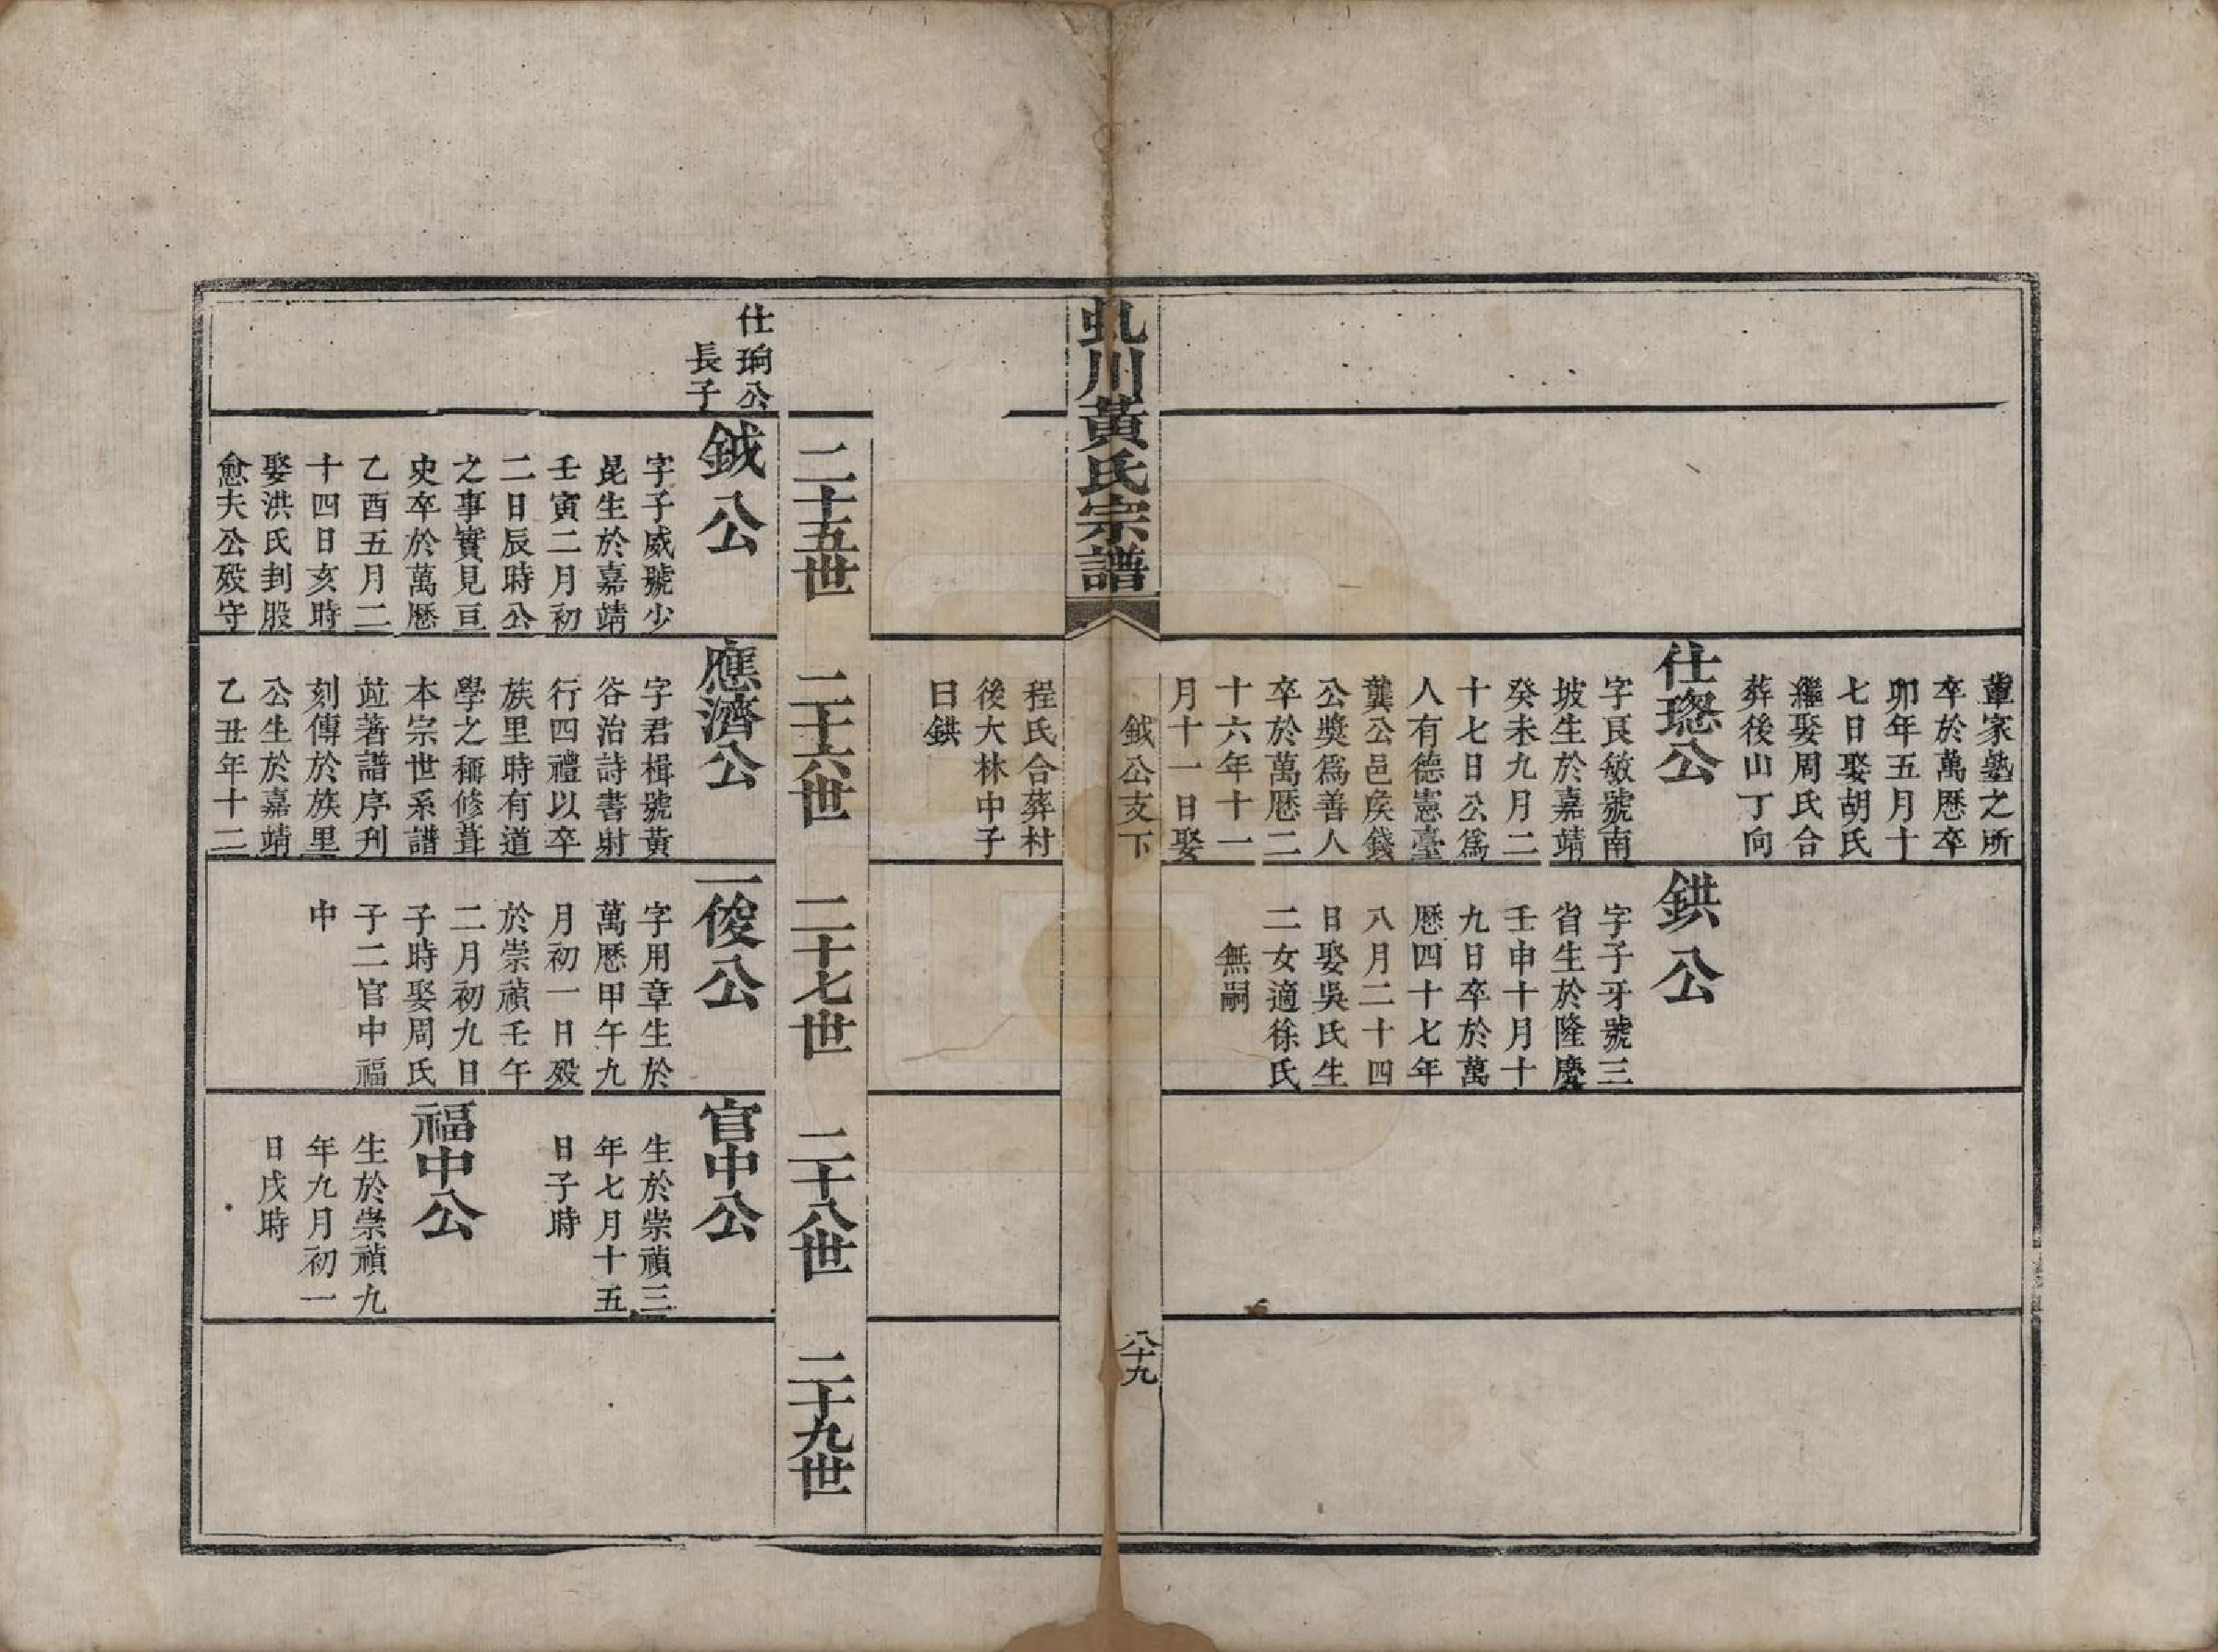 輩家塾之所
卒於萬歷卒
卯年五月十
七日娶胡氏
繼娶周氏合
葬後山丁向
仕璁公
字良敏號南
坡生於嘉靖
癸未九月二
十七日公爲
人有德憲臺
龔公邑矦錢
公奬爲善人
卒於萬歷二
十六年十一
月十一日娶
鉷公
字子牙號三
省生於隆慶
壬申十月十
九日卒於萬
歷四十七年
八月二十四
日娶吳氏生
二女適徐氏
無嗣
虬川黃氏宗譜
鉞公支下
八十九
程氏合葬村
後大林中子
曰鉷
二十五世
二十六世
二十七世
二十八世
二十九世
仕珦公
長子
鉞公
字子威號少
昆生於嘉靖
壬寅二月初
二日辰時公
之事實見亘
史卒於萬歷
乙酉五月二
十四日亥時
娶洪氏刲股
愈夫公殁守
應濟公
字君楫號黃
谷治詩書射
行四禮以卒
族里時有道
學之稱修葺
本宗世系譜
竝著譜序刋
刻傳於族里
公生於嘉靖
乙丑年十二
一俊公
字用章生於
萬歷甲午九
月初一日殁
於崇禎壬午
二月初九日
子時娶周氏
子二官中福
中
官中公
生於崇禎三
年七月十五
日子時
福中公
生於崇禎九
年九月初一
日戌時